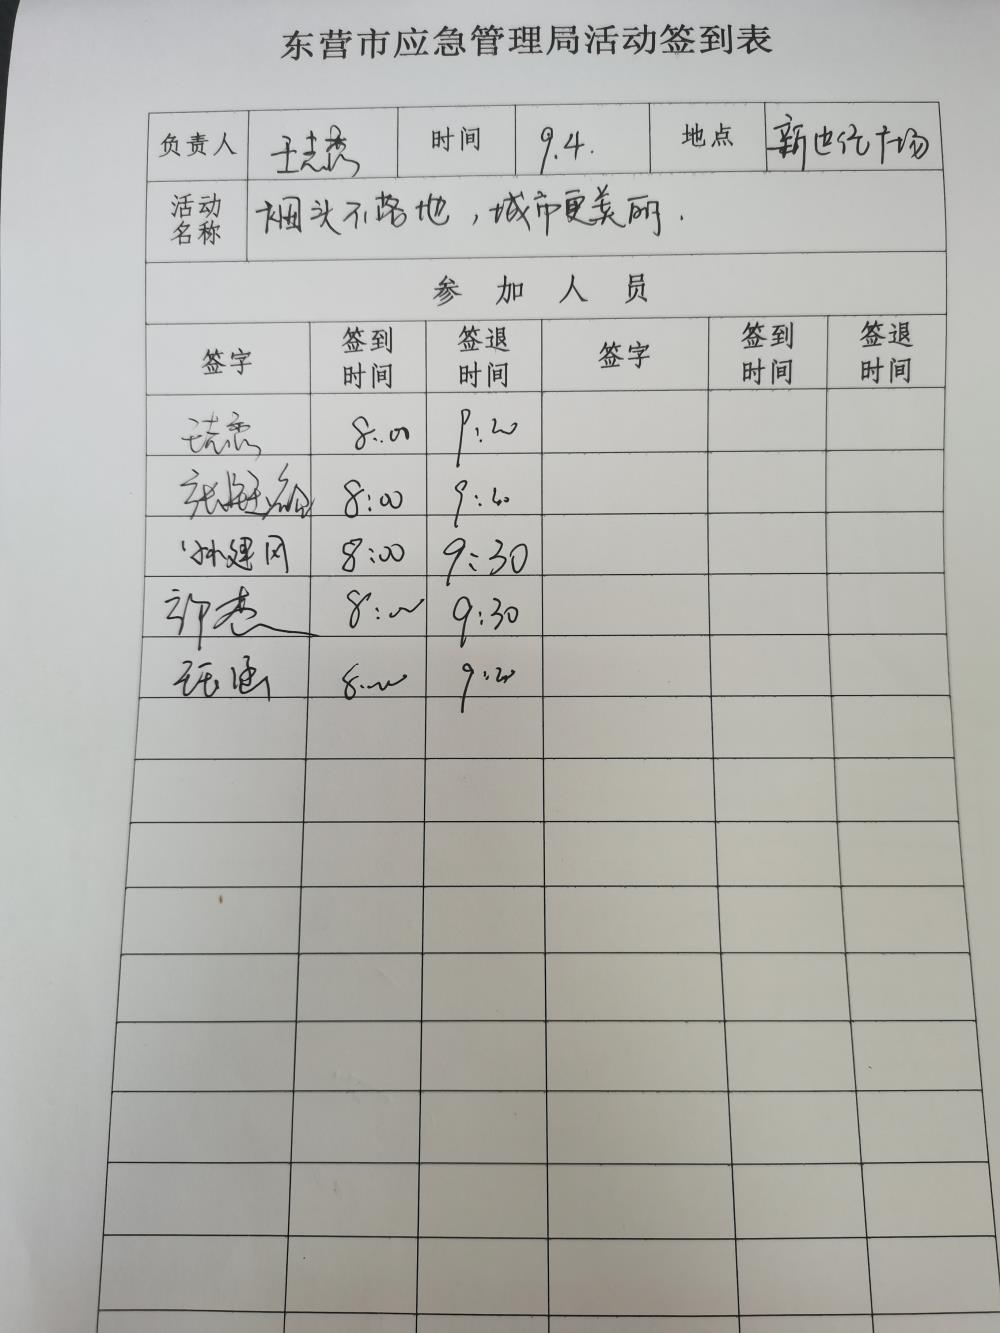 东营市应急管理局活动签到表
负责人 时间 9.4. 地点 新世纪广场
活动名称 烟头不落地，城市更美丽.
参加人员
签字 签到时间 签退时间 签字 签到时间 签退时间
8:00
8:00
孙建网 8:00 9:30
许杰 8:00 9:30
8:00